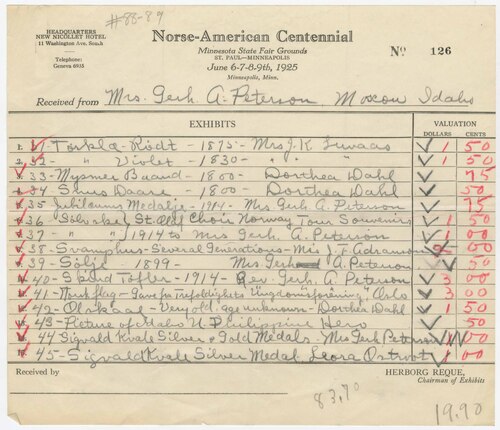 #88-89
HEADQUARTERS
NEW NICOLLET HOTEL
11 Washington Ave. South
Telephone:
Geneva 6935
Norse-American Centennial
Minnesota State Fair Grounds
ST. PAUL—MINNEAPOLIS
June 6-7-8-9th, 1925
Minneapolis, Minn.
No 126
Received from Mrs. Gerh A. Peterson Moscow Idaho
EXHIBITS VALUATION
DOLLARS CENTS
1. 31- Torkla - Rödt - 1875 - Mrs J. K. 1 50
2. 32- " Violet - 1830 - " " 1 50
33- Baand - 1800 - Dorthea Dahl 75
34 Snus Daase - 1800 - Dorthea Dahl 50
35- Jubilaeums Medalje - 1914 - Mrs Gerh A. Peterson 75
36 St Olaf Choir Norway Tour Souvenirs 1 50
37- " " 1914 to Mrs Gerh A. Peterson 1 00
38- Svamphus - Several Generations - Mrs 00
39- Sölje 1899 - Mrs Gerh A. Peterson 50
40- Tofler - 1914 - Rev. Gerh. A. Peterson 3 00
41- Norsk flag - Gave fra Trefoldigheds Ungdomsforening, Oslo 3 00
42- Ölskaal - Very old age unknown - Dorthea Dahl 1 50
43- Picture of Hero 50
44 Sigvald Kvale Silver & Gold Medals - Mrs Gerh Peterson 00
45- Sigvald Kvale Silver Medal Leora Ostroot 1 00
Received by HERBORG REQUE,
Chairman of Exhibits
83.70
19.90